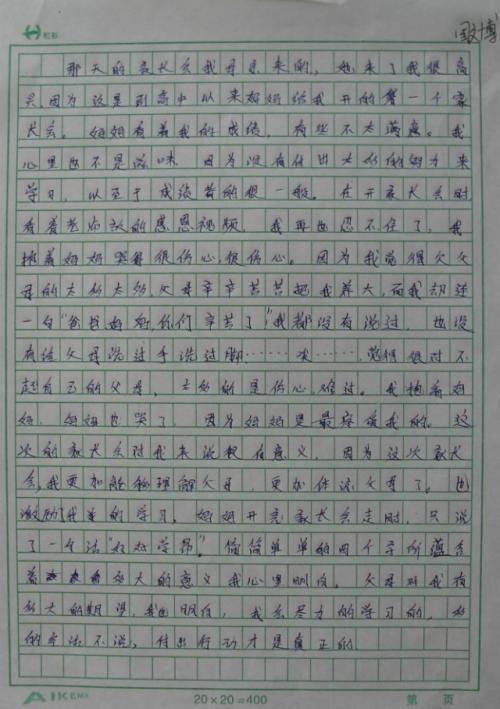 那天的家长会我母亲来的，她来了我很高
兴因为这是到高中以来妈妈给我开的第一个家
长会。妈妈看着我的成绩，有些不太满意。我
心里也不是滋味 因为没有付出太多的努力来
学习，以至于成绩考的很一般。在开家长会时
看着老师放的感恩视频，我再也忍不住了，我
抱着妈妈哭得很伤心，很伤心。因为我觉得欠父
母的太多太多，父母辛辛苦苦把我养大，而我却连
一句“爸爸妈妈你们辛苦了”我都没有说过，也没
有给父母洗过手洗过脚……唉……，觉得很对不
起自己的父母，太多的是伤心难过。我抱着妈
妈，妈妈也哭了，因为妈妈是最疼我的。这
次的家长会对我来说很有意义，因为这次家长
会，我更加能够理解父母，更加体谅父母了。也
激励了我的学习。妈妈开完家长会走时，只说
了一句话“好好学昂”。简简单单的四个字所蕴含
着多大的意义我心里明白。父母对我有
多大的期望，我也明白，我会尽力的学习的，多
的字法不说，付出行动才是真正的
20×20=400
第 页